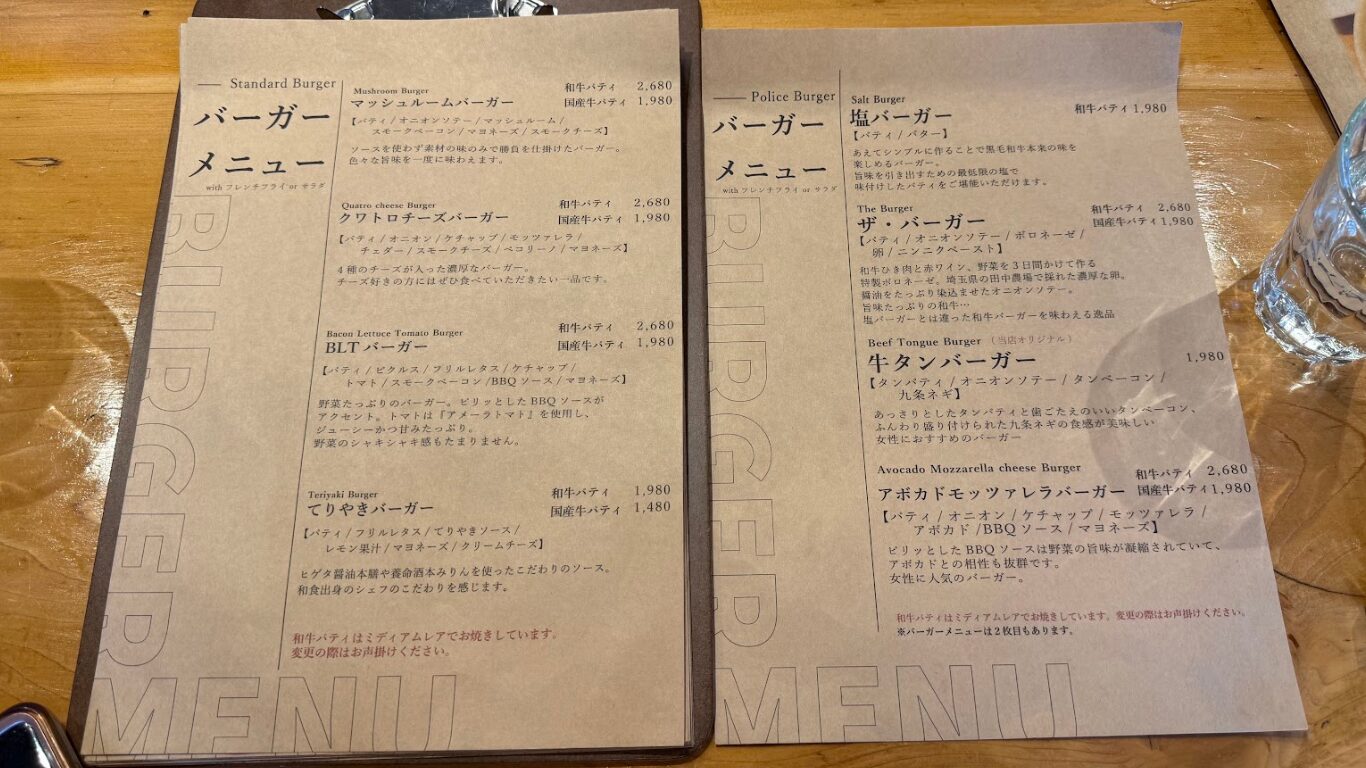 Standard Burger
バーガー
メニュー
with フレンチフライ or サラダ
Mushroom Burger
マッシュルームバーガー
和牛パティ 2,680
国産牛パティ 1,980
【パティ/オニオンソテー/マッシュルーム/
スモークベーコン/マヨネーズ/スモークチーズ】
ソースを使わず素材の味のみで勝負を仕掛けたバーガー。
色々な旨味を一度に味わえます。
Quatro cheese Burger
クワトロチーズバーガー
和牛パティ 2,680
国産牛パティ 1,980
【パティ/オニオン/ケチャップ/モッツァレラ/
チェダー/スモークチーズ/ペコリーノ/マヨネーズ】
4種のチーズが入った濃厚なバーガー。
チーズ好きの方にはぜひ食べていただきたい一品です。
Bacon Lettuce Tomato Burger
BLTバーガー
和牛パティ 2,680
国産牛パティ 1,980
【パティ/ピクルス/フリルレタス/ケチャップ/
トマト/スモークベーコン/BBQソース/マヨネーズ】
野菜たっぷりのバーガー。ピリッとしたBBQソースが
アクセント。トマトは『アメーラトマト』を使用し、
ジューシーかつ甘みたっぷり。
野菜のシャキシャキ感もたまりません。
Teriyaki Burger
てりやきバーガー
和牛パティ 1,980
国産牛パティ 1,480
【パティ/フリルレタス/てりやきソース/
レモン果汁/マヨネーズ/クリームチーズ】
ヒゲタ醤油本膳や養命酒本みりんを使ったこだわりのソース。
和食出身のシェフのこだわりを感じます。
和牛パティはミディアムレアでお焼きしています。
変更の際はお声掛けください。
BURGER
MENU
Police Burger
バーガー
メニュー
with フレンチフライ or サラダ
Salt Burger
塩バーガー
和牛パティ 1,980
【パティ/バター】
あえてシンプルに作ることで黒毛和牛本来の味を
楽しめるバーガー。
旨味を引き出すための最低限の塩で
味付けしたパティをご堪能いただけます。
The Burger
ザ・バーガー
和牛パティ 2,680
国産牛パティ 1,980
【パティ/オニオンソテー/ボロネーゼ/
卵/ニンニクペースト】
和牛ひき肉と赤ワイン、野菜を3日間かけて作る
特製ボロネーゼ。埼玉県の田中農場で採れた濃厚な卵。
醤油をたっぷり染込ませたオニオンソテー。
旨味たっぷりの和牛…
塩バーガーとは違った和牛バーガーを味わえる逸品
Beef Tongue Burger (当店オリジナル)
牛タンバーガー
1,980
【タンパティ/オニオンソテー/タンベーコン/
九条ネギ】
あっさりとしたタンパティと歯ごたえのいいタンベーコン、
ふんわり盛り付けられた九条ネギの食感が美味しい
女性におすすめのバーガー
Avocado Mozzarella cheese Burger
アボカドモッツァレラバーガー
和牛パティ 2,680
国産牛パティ 1,980
【パティ/オニオン/ケチャップ/モッツァレラ/
アボカド/BBQソース/マヨネーズ】
ピリッとしたBBQソースは野菜の旨味が凝縮されていて、
アボカドとの相性も抜群です。
女性に人気のバーガー。
和牛パティはミディアムレアでお焼きしています。変更の際はお声掛けください。
※バーガーメニューは2枚目もあります。
BURGER
MENU